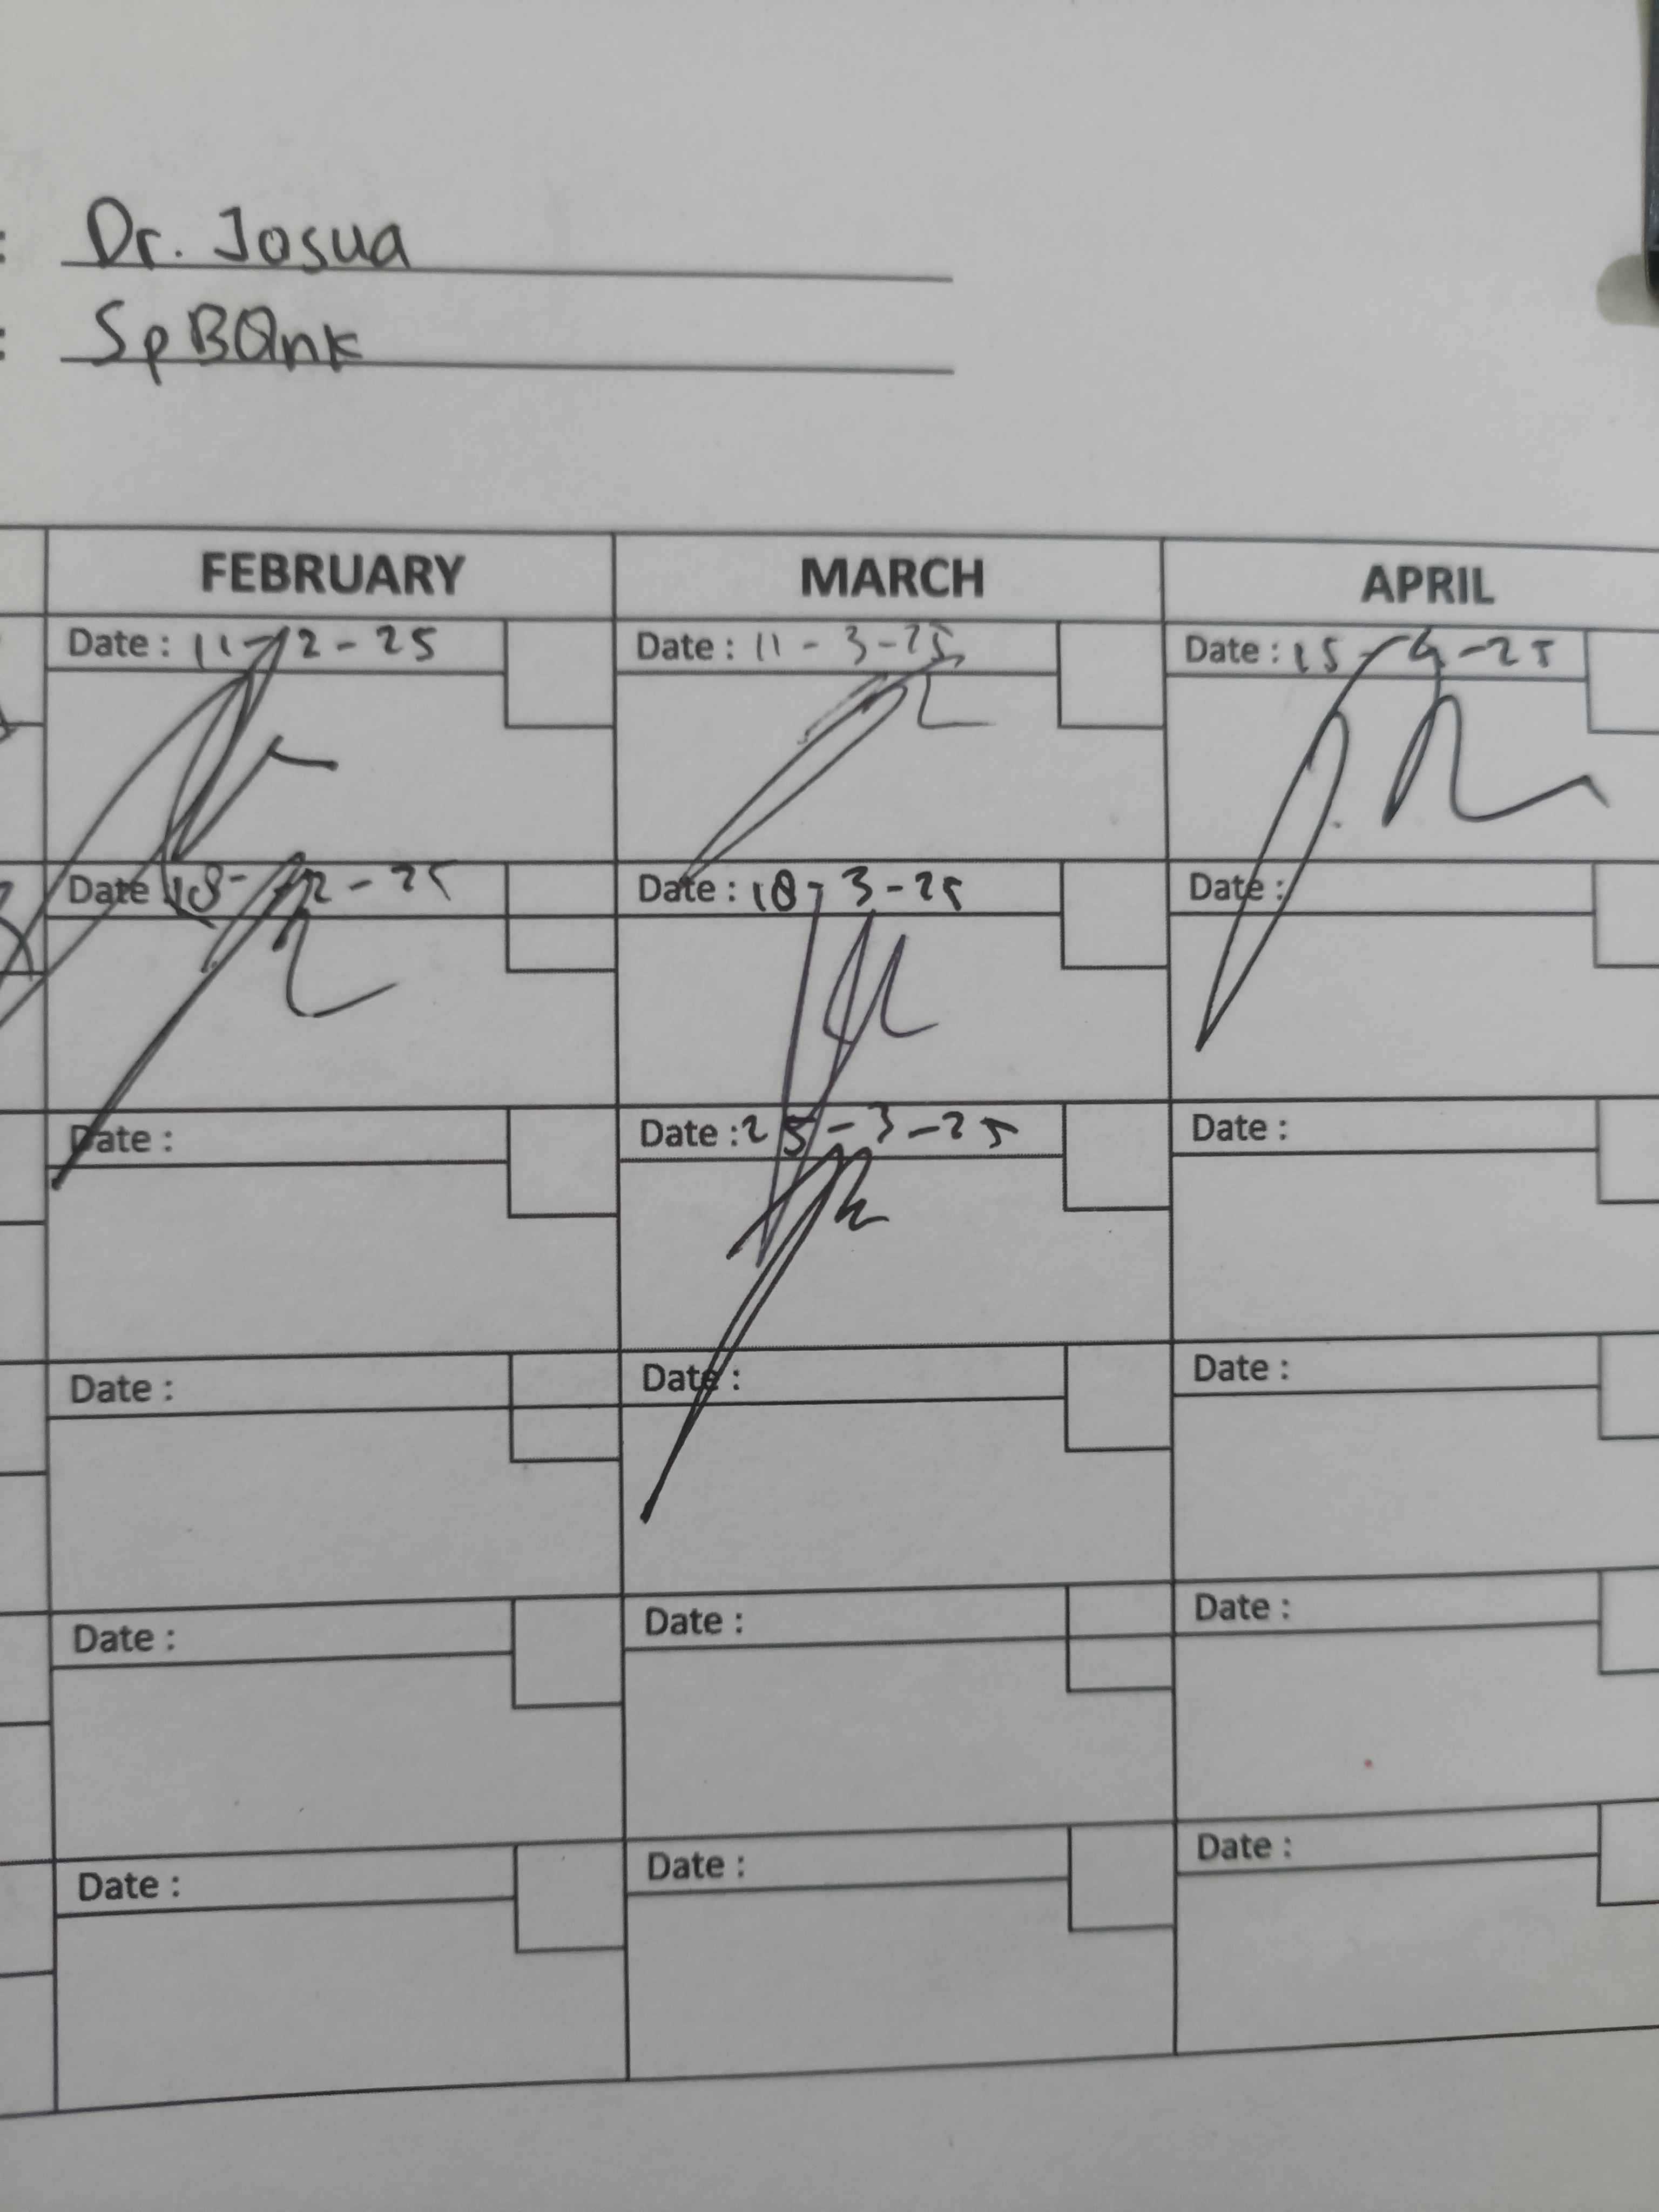 : Dr. Josua
: SpBOnk
FEBRUARY MARCH APRIL
Date : 11-2-25 Date : 11-3-25 Date : 15-4-25
Date 18-2-25 Date : 18-3-25 Date :
Date : Date : 25-3-25 Date :
Date : Date : Date :
Date : Date : Date :
Date : Date : Date :